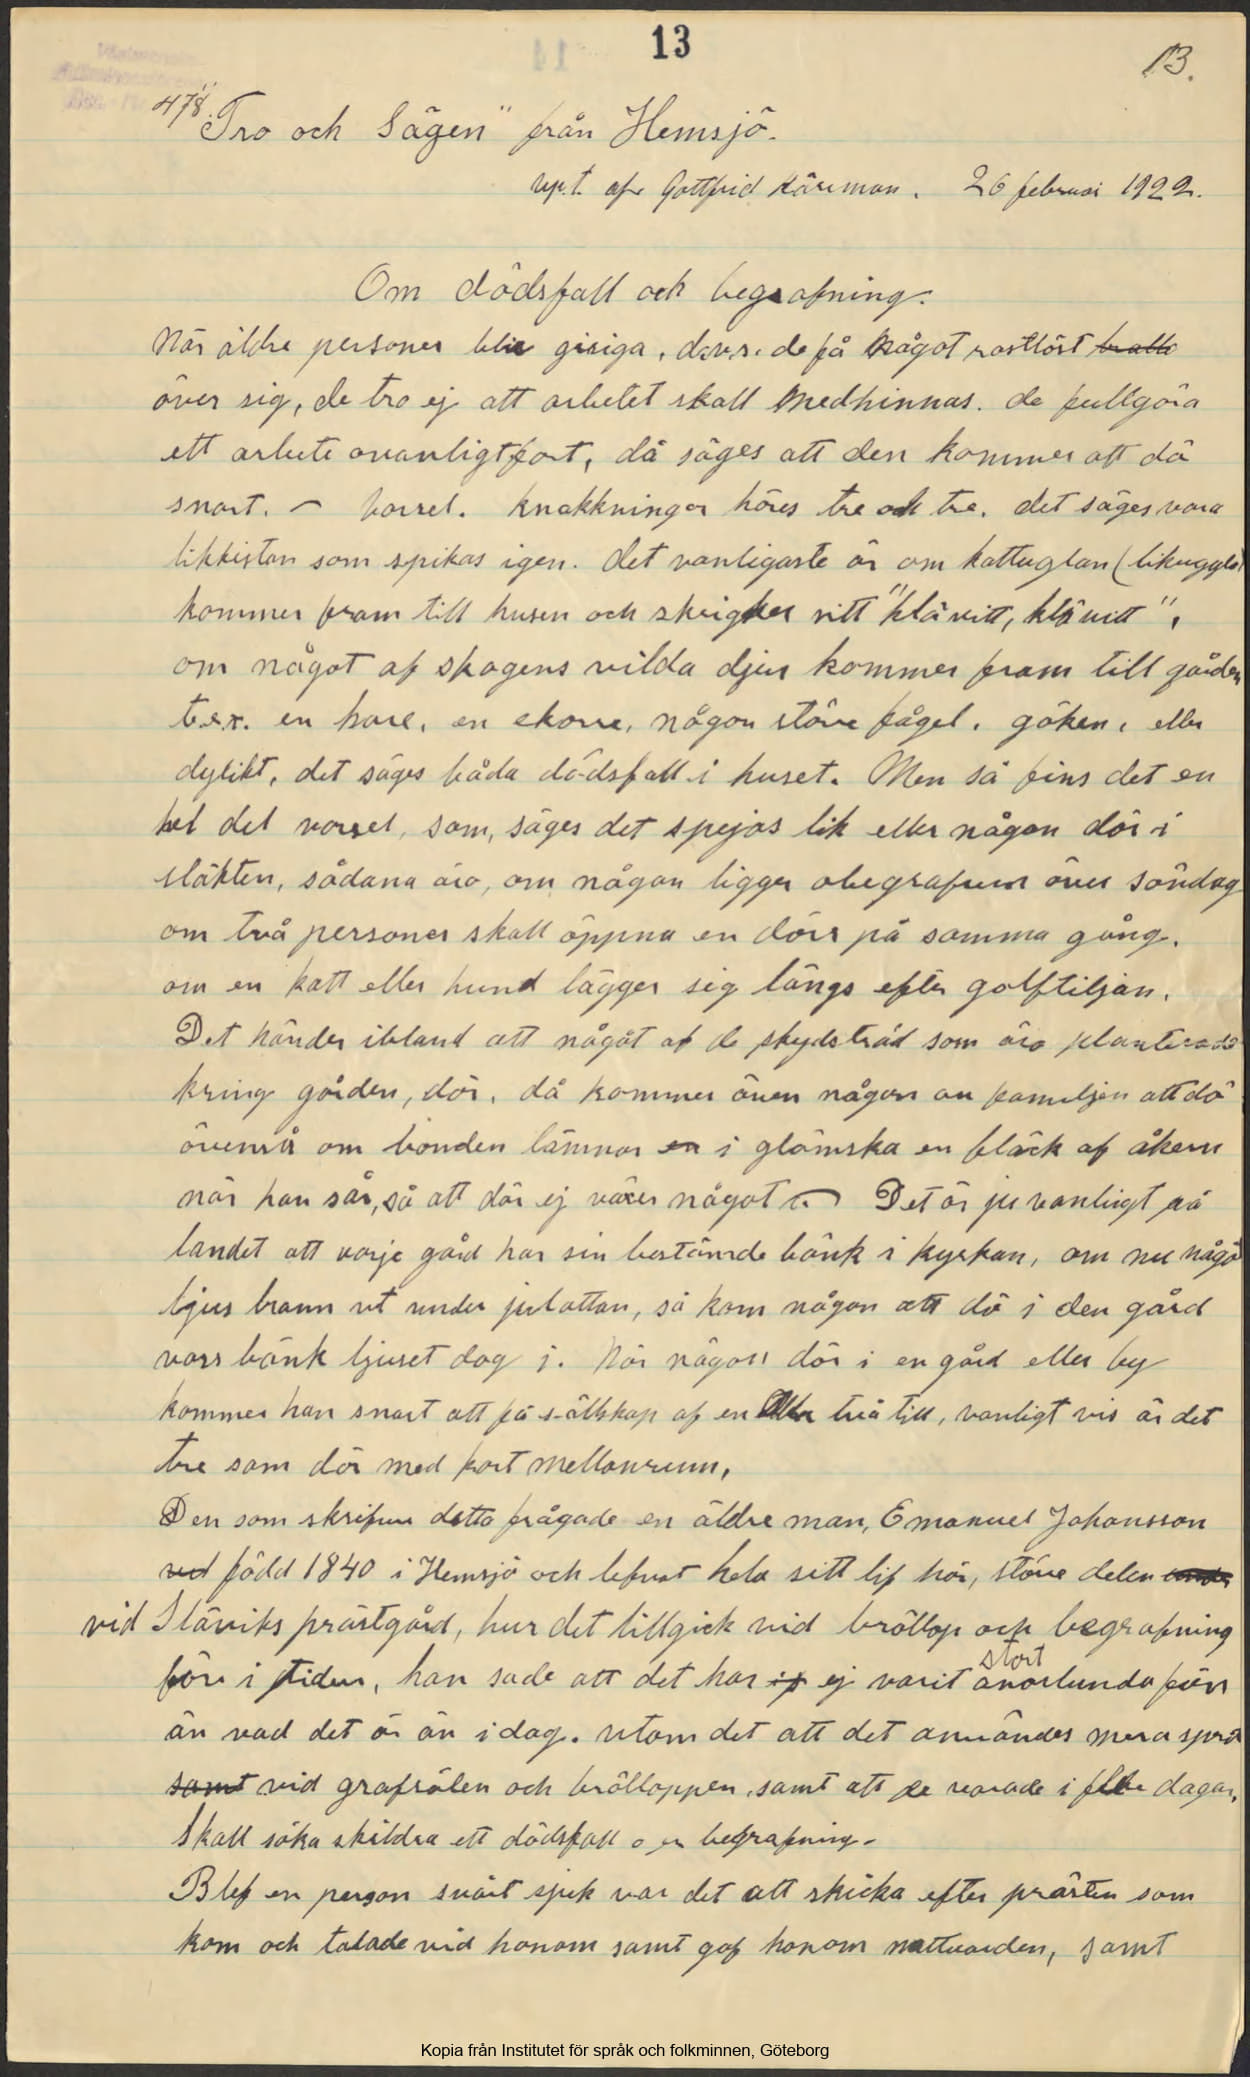 13
13.
478.
"Tro och Sägen" från Hemsjö.
uppt. af Gottfrid Kärrman. 26 februari 1922.
Om dödsfall och begrafning.
När äldre personer blir giriga, d.v.s. de få något rastlöst
över sig, de tro ej att arbetet skall medhinnas. de fullgöra
ett arbete ovanligt fort, då säges att den kommer att dö
snart. – Varsel. knakkningar höres tre och tre. det säges vara
likkistan som spikas igen. det vanligaste är om kattuglan (likugglan)
kommer fram till husen och skriker sitt "klävitt, klävitt",
om något af skogens vilda djur kommer fram till gården
t.ex. en hare, en ekorre, någon större fågel, göken, eller
dylikt, det säges båda dödsfall i huset. Men så fins det en
hel del varsel, som, säges det spejas lik eller någon dör i
släkten, sådana äro, om någon ligger obegrafven över söndag
om två personer skall öppna en dörr på samma gång.
om en katt eller hund lägger sig längs efter golftiljan.
Det händer ibland att något af de skydsträd som äro planterade
kring gården, dör, då kommer även någon av familjen att dö
även så om bonden lämnar en i glömska en fläck af åkern
när han sår, så att där ej växer något. Det är ju vanligt på
landet att varje gård har sin bestämda bänk i kyrkan, om nu något
ljus brann ut under julottan, så kom någon att dö i den gård
vars bänk ljuset dog i. När någon dör i en gård eller by
kommer han snart att få sällskap af en eller två till, vanligt vis är det
tre som dör med kort mellanrum.
Den som skrifver detta frågade en äldre man, Emanuel Johansson
ved född 1840 i Hemsjö och lefvat hela sitt lif här, större delen
vid Stäviks prästgård, hur det tillgick vid bröllop och begrafning
före i tiden, han sade att det har ej varit stort anorlunda förr
än vad det är än i dag. utom det att det användes mera sprit
samt vid grafvölen och brölloppen, samt att de varade i flere dagar.
Skall söka skildra ett dödsfall o en begrafning.
Blef en person svårt sjuk var det att skicka efter prästen som
kom och talade vid honom samt gaf honom nattvarden, samt
Kopia från Institutet för språk och folkminnen, Göteborg